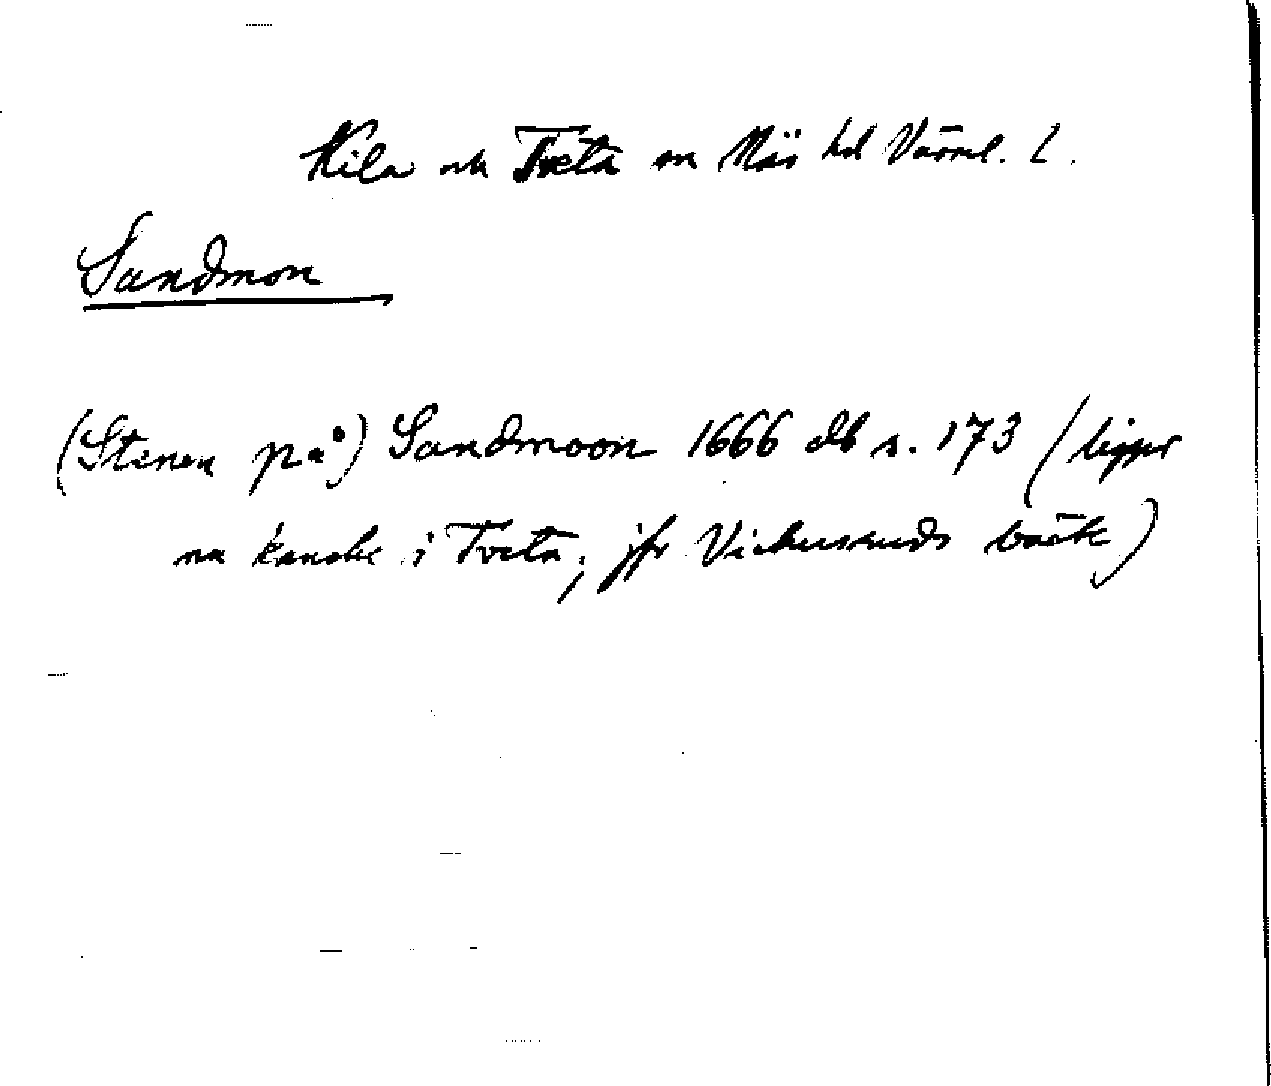 Kila och Tveta sn Näs hd Värml. l.
Sandmon
(Stenen på) Sandmoon 1666 db s. 173 (ligger
nu kanske i Tveta; jfr Vickersruds bäck)